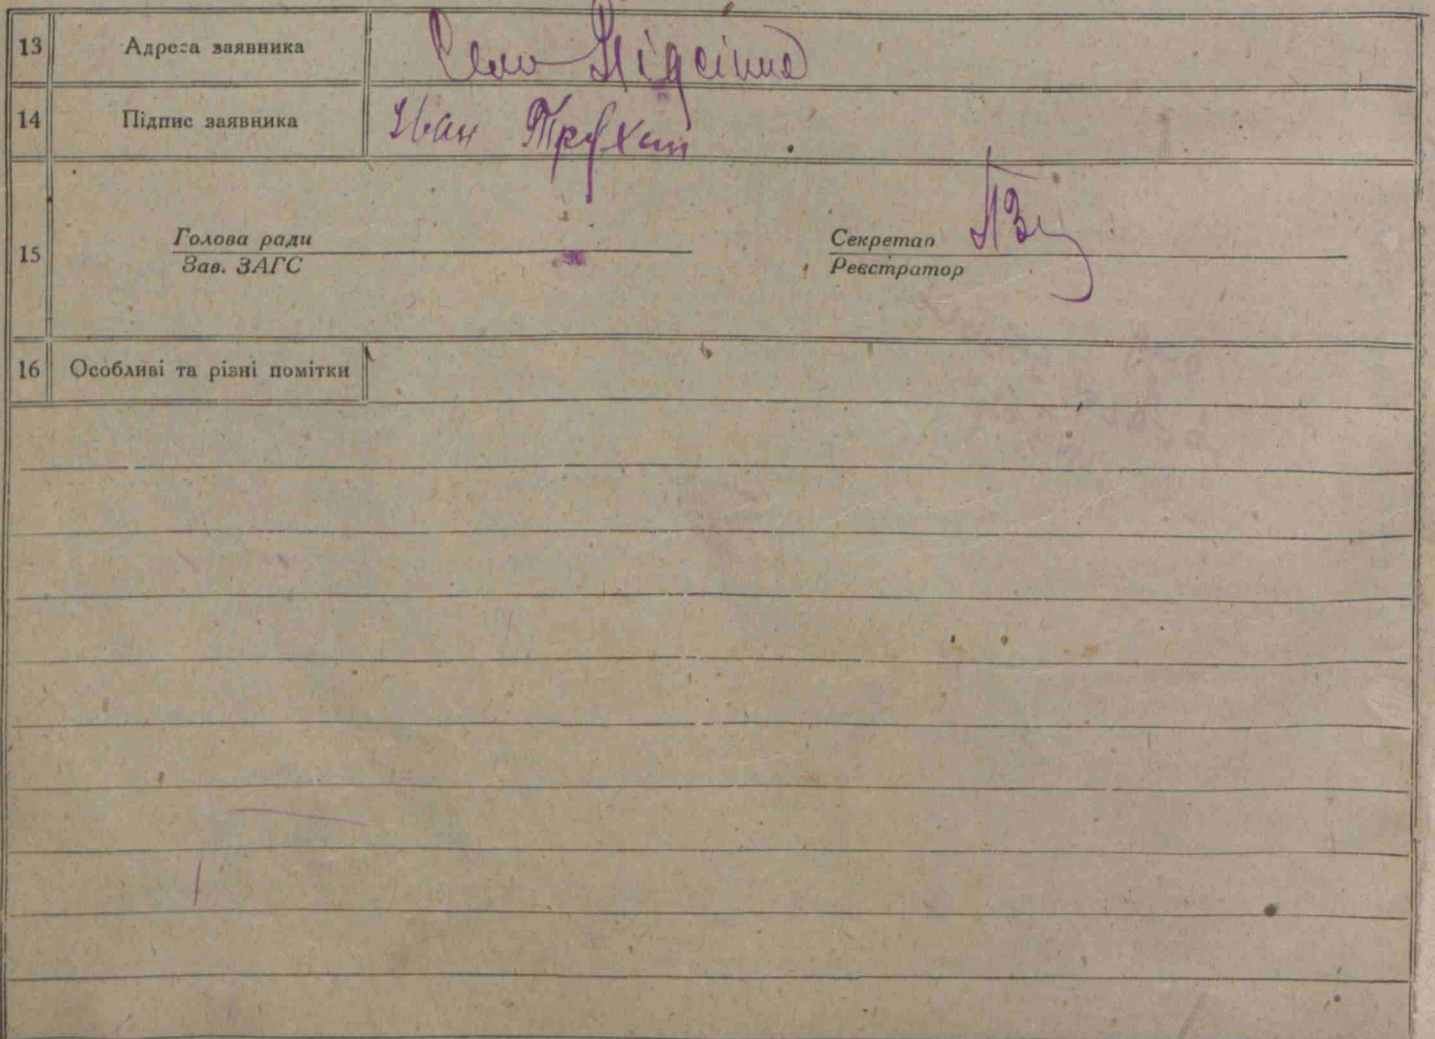 13 Адреса заявника Село Підсинє
14 Підпис заявника Іван Трухан
15 Голова ради Секретар
Зав. ЗАГС Реєстратор
16 Особливі та різні помітки